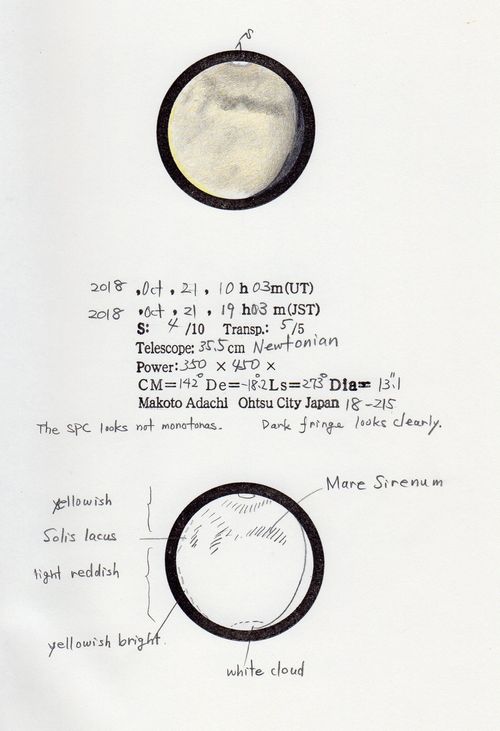 S
2018 , Oct , 21 , 10 h 03m(UT)
2018 , Oct , 21 , 19 h03 m(JST)
S: 4 /10 Transp.: 5/5
Telescope: 35.5cm Newtonian
Power: 350 × 450 ×
CM=142° De=-18.°2 Ls=273° Dia= 13."1
Makoto Adachi Ohtsu City Japan 18-215
The SPC looks not monotonas. Dark fringe looks clearly.
Mare Sirenum
yellowish
Solis lacus
light reddish
yellowish bright.
white cloud